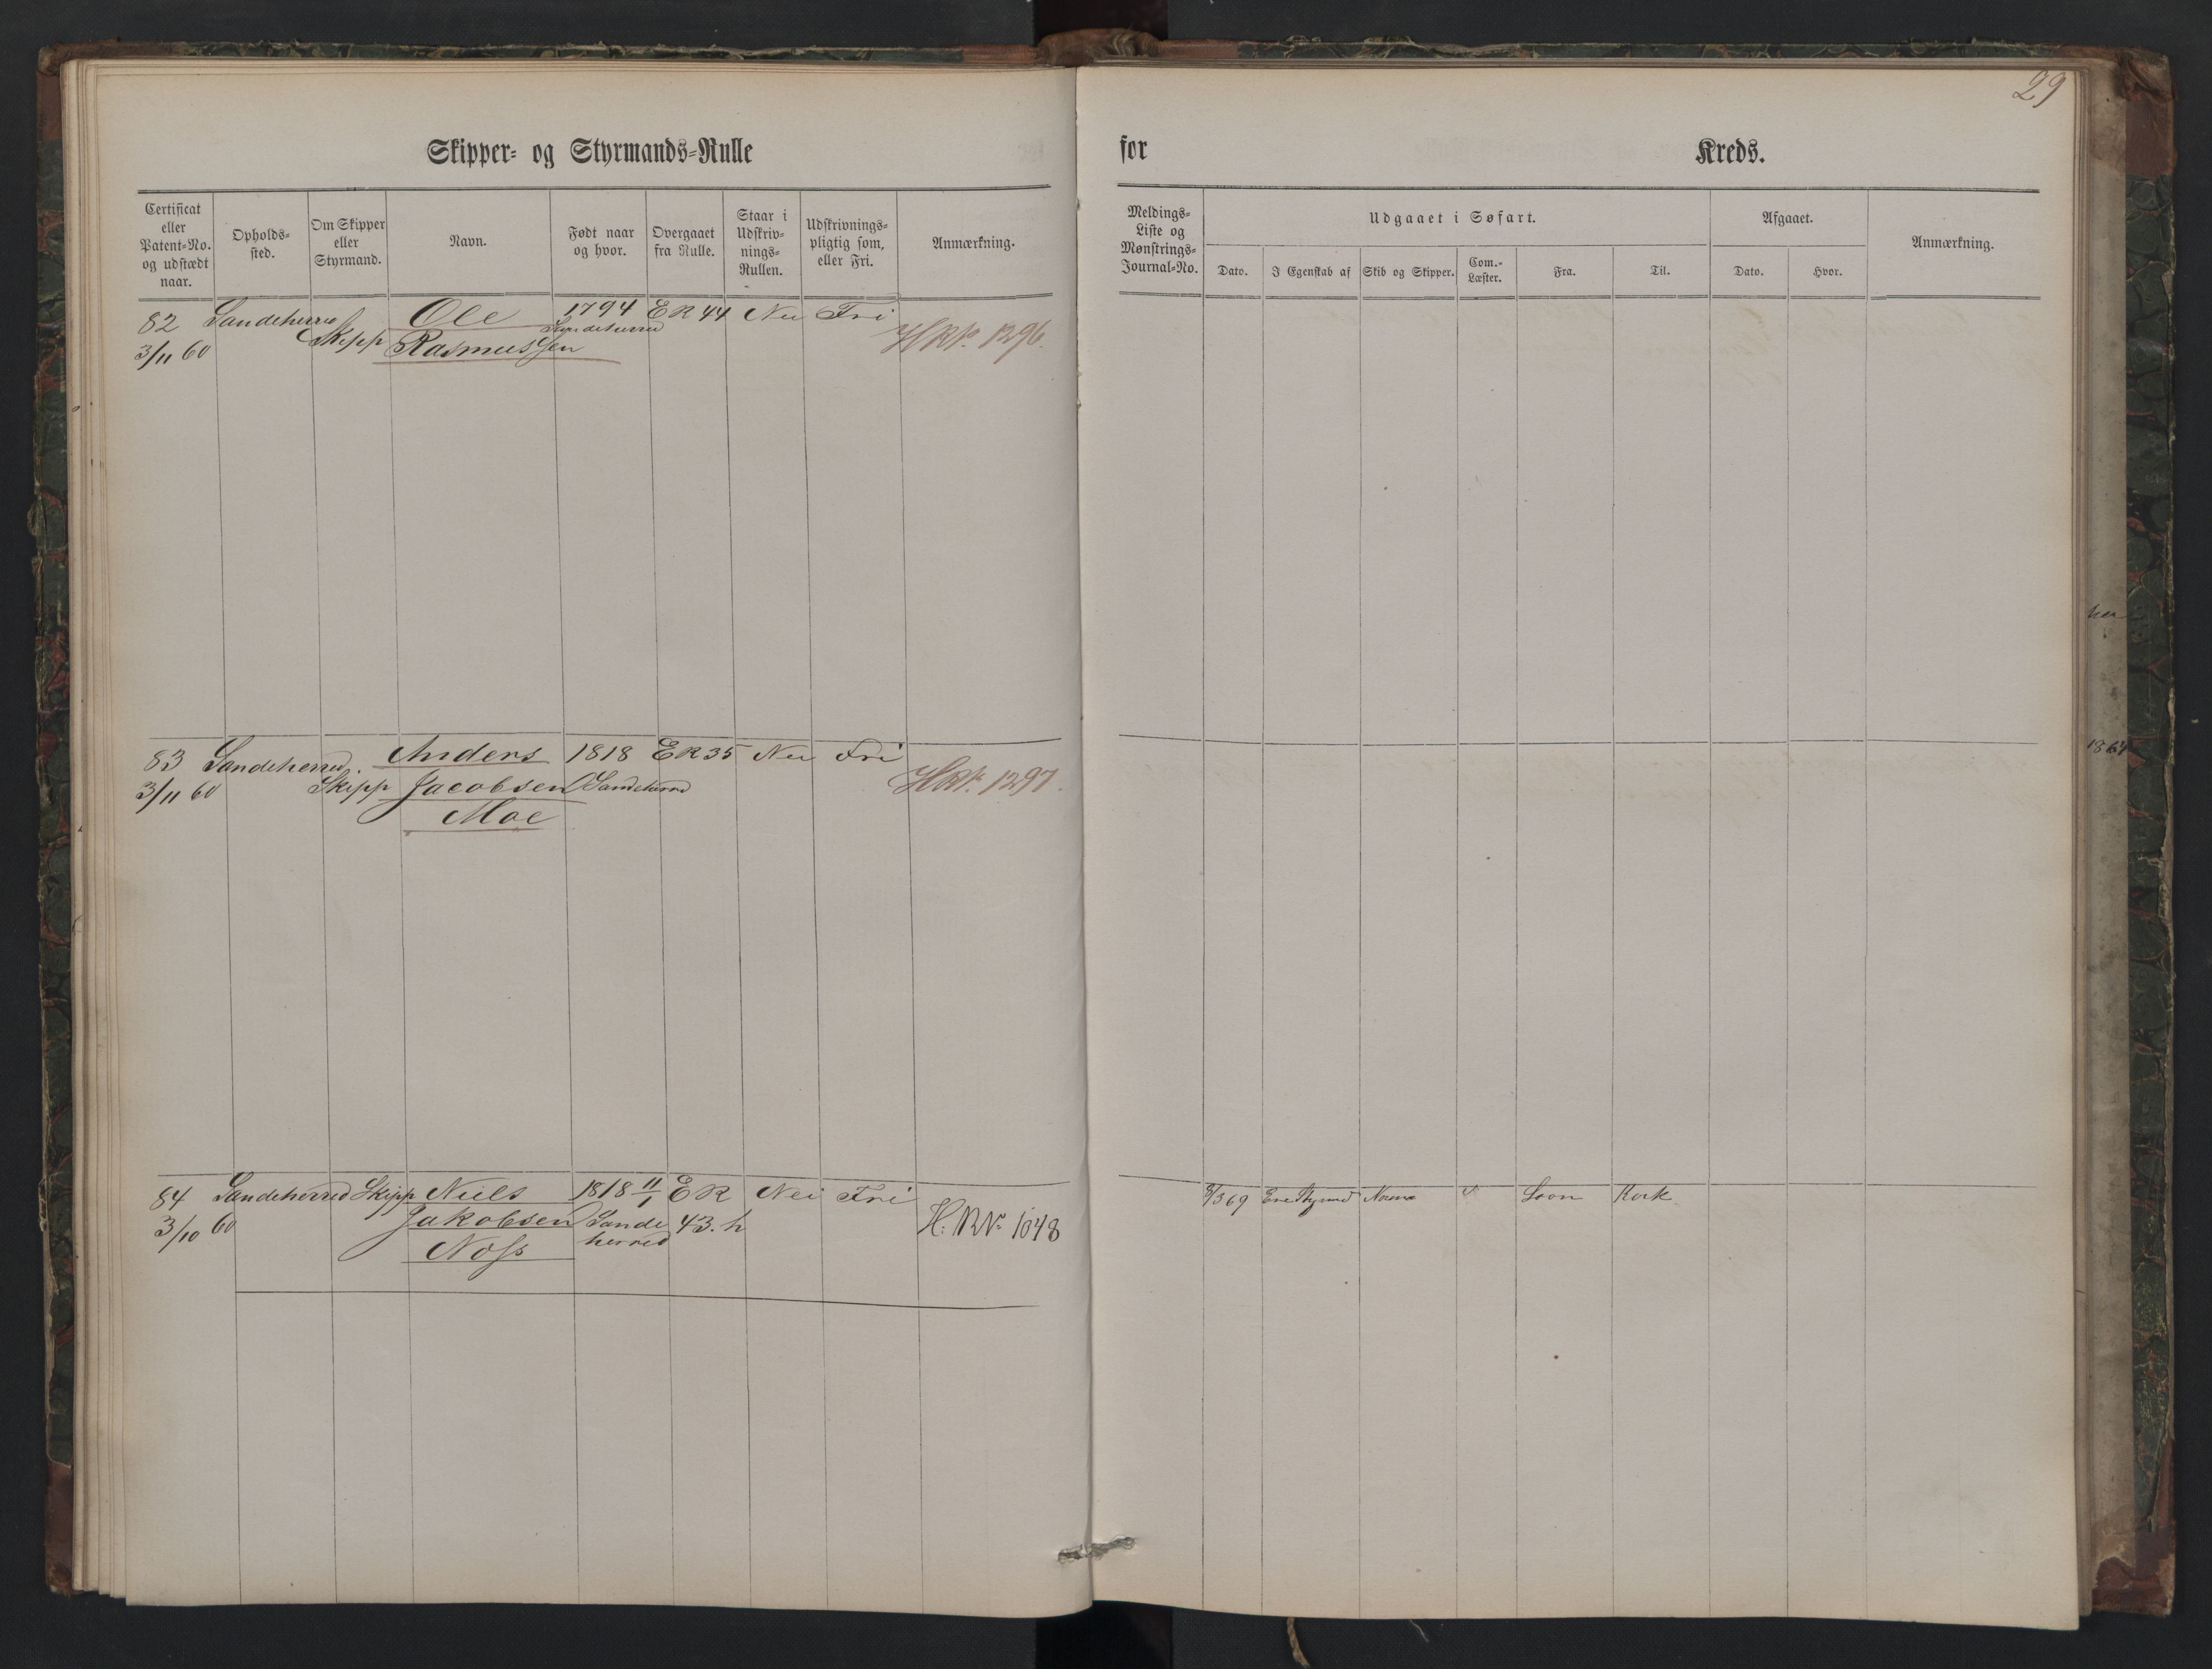 29
Skipper- og Styrmands-Rulle
for Kreds.
Certificat
eller
Patent-No.
og udstædt
naar.
Opholds-
sted.
Om Skipper
eller
Styrmand.
Navn.
Født naar
og hvor.
Overgaaet
fra Rulle.
Staar i
Udskriv-
nings-
Rullen.
Udskrivnings-
pligtig som,
eller Fri.
Anmærkning.
Meldings-
Liste og
Mønstrings-
Journal-No.
Udgaaet i Søfart.
Dato.
I Egenskab af
Skib og Skipper.
Com.-
Læster.
Fra.
Til.
Afgaaet.
Dato.
Hvor.
Anmærkning.
82 Sandeherred Ole 1794 ER 44 Nei Fri
3/11 60 Skipp Rasmussen Sandeherred HRN. 1296.
83 Sandeherred. Anders 1818 ER 35 Nei Fri
3/11 60 Skipp Jacobsen Sandeherred HRN. 1297.
Moe
1864
84 Sandeherred Skipp Niels 1818 11/1 ER Nei Fri
3/10 60 Jakobsen Sande 43. h H. RN. 1048
Noss herred
8/3 69 Ene Styrmd Norma Soon Rock